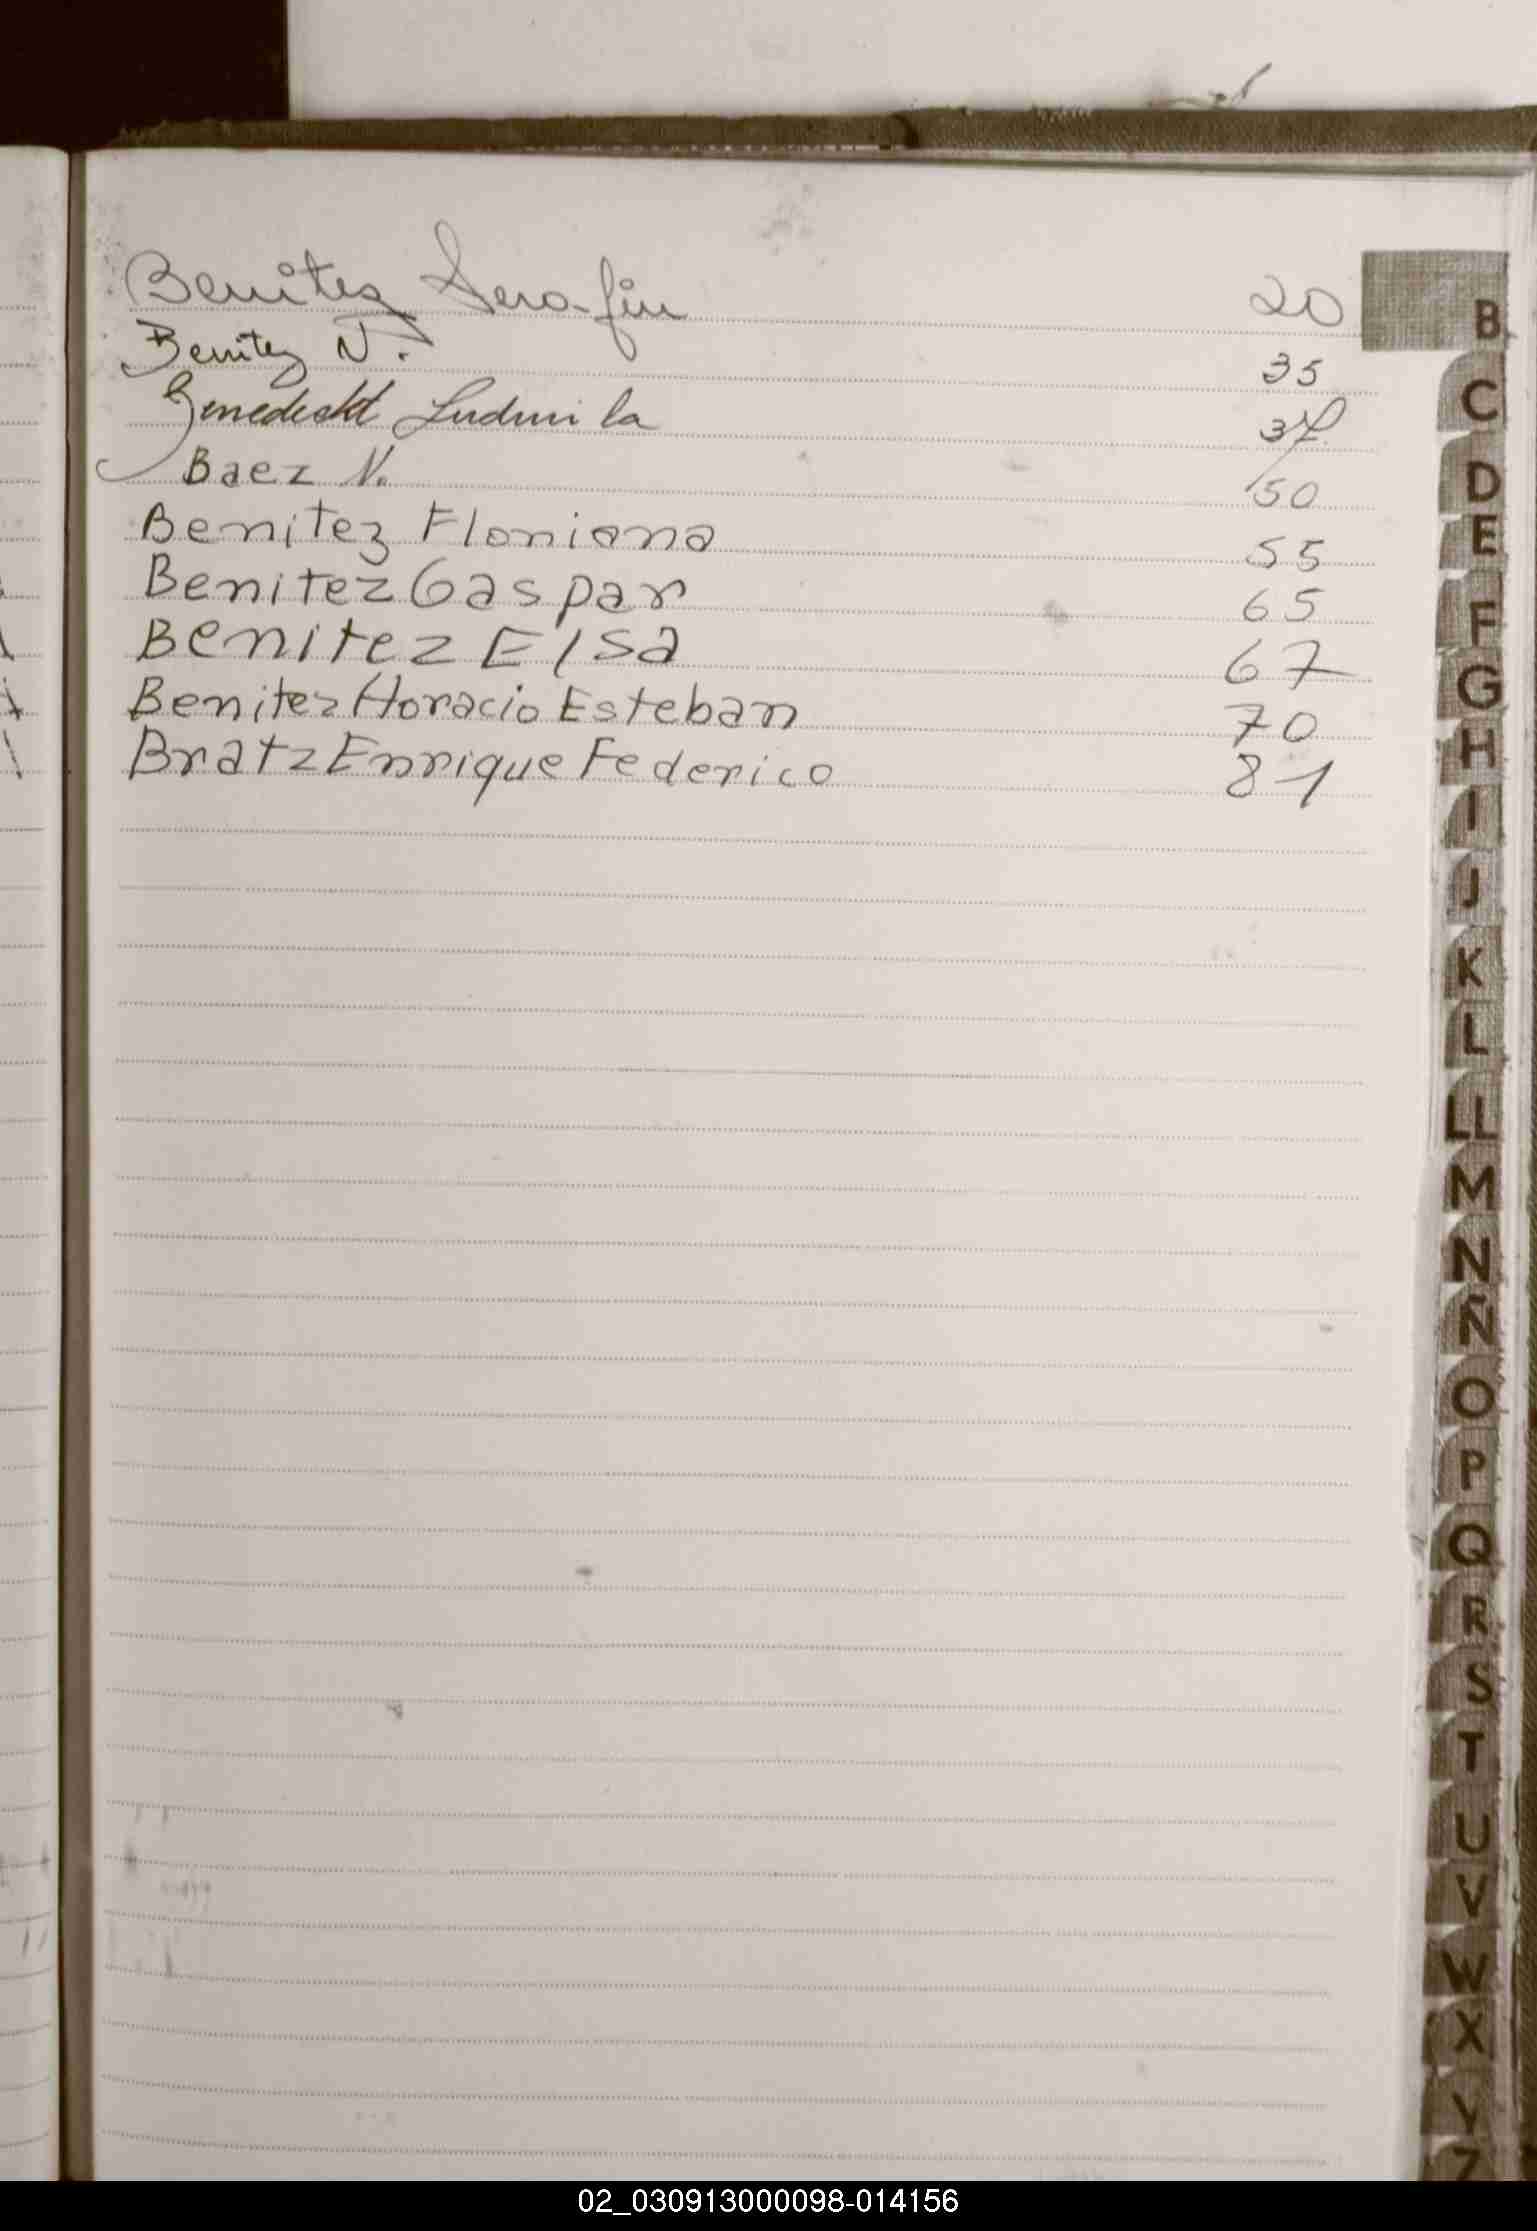 Benitez Serafin 20
Benitez N. 35
Ludmila 37
Baez N. 50
Benitez Floriana 55
Benitez Gaspar 65
Benitez Elsa 67
Benitez Horacio Esteban 70
Bratz Enrique Federico 81
B
C
D
E
F
G
H
I
J
K
L
LL
M
N
Ñ
O
P
Q
R
S
T
U
V
W
X
Y
Z
02_030913000098-014156